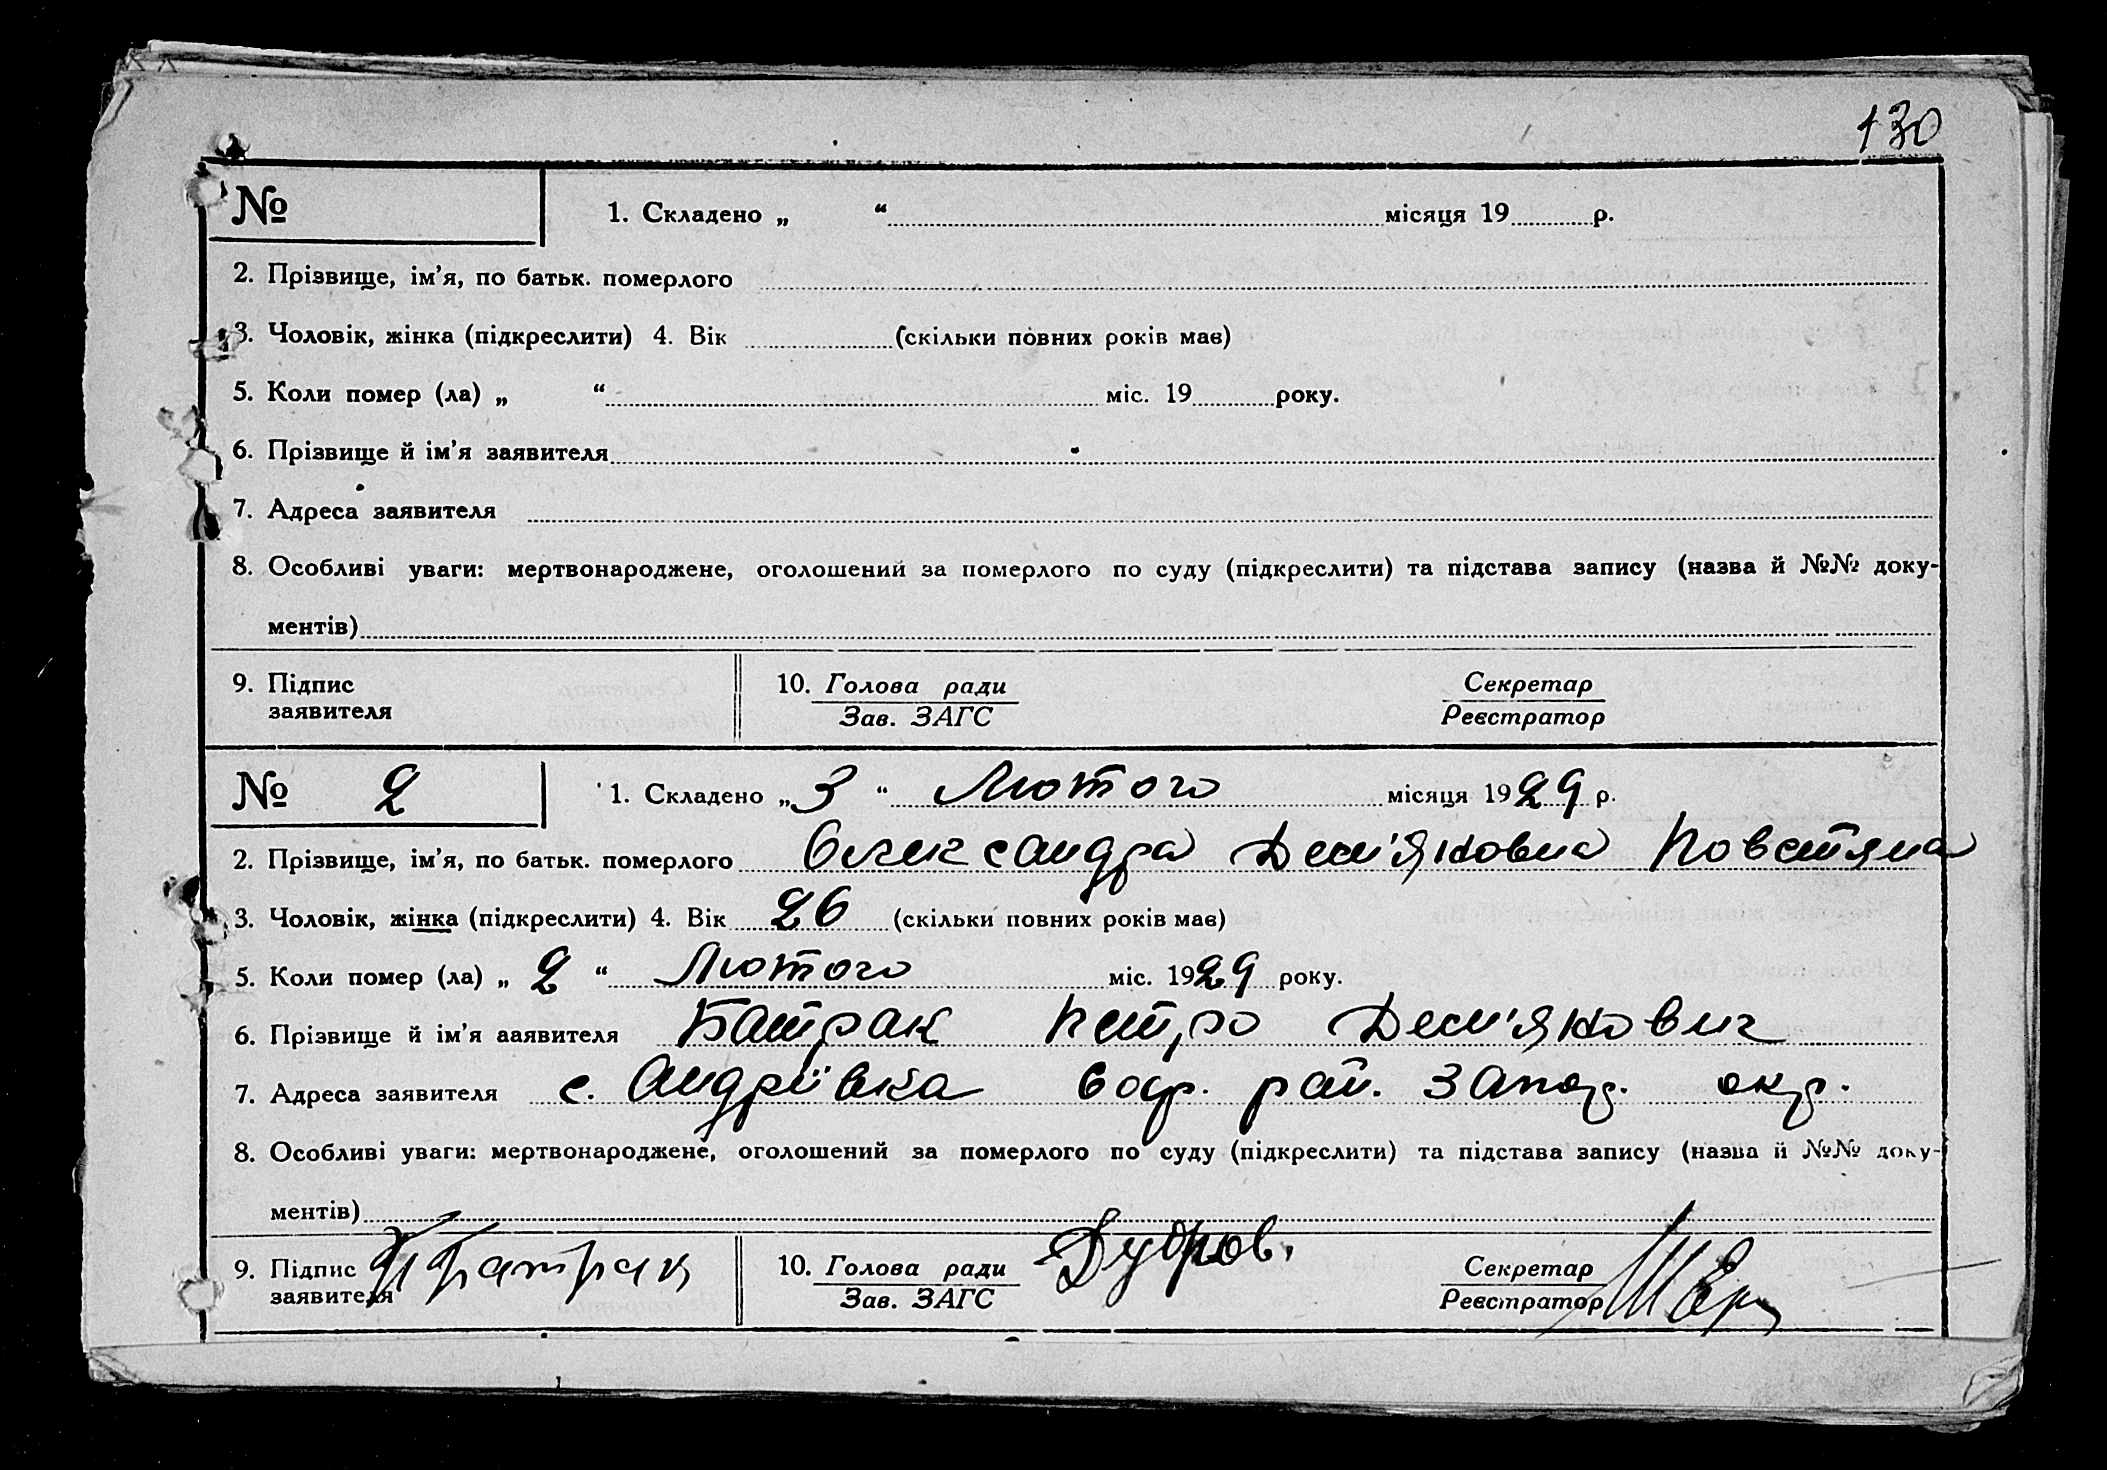 130
№ 1. Складено „ “ місяця 19 р.
2. Прізвище, ім’я, по батьк. померлого
3. Чоловік, жінка (підкреслити) 4. Вік (скільки повних років має)
5. Коли помер (ла) „ “ міс. 19 року.
6. Прізвище й ім’я заявителя
7. Адреса заявителя
8. Особливі уваги: мертвонароджене, оголошений за померлого по суду (підкреслити) та підстава запису (назва й №№ доку-
ментів)
9. Підпис 10. Голова ради Секретар
заявителя Зав. ЗАГС Реєстратор
№ 2 1. Складено „3“ Лютого місяця 1929 р.
2. Прізвище, ім’я, по батьк. померлого Олександра Дем'яновна Повстяна
3. Чоловік, жінка (підкреслити) 4. Вік 26 (скільки повних років має)
5. Коли помер (ла) „2“ Лютого міс. 1929 року.
6. Прізвище й ім’я ааявителя Батрак Петро Дем'янович
7. Адреса заявителя с. Андрівка рай. Запор. окр.
8. Особливі уваги: мертвонароджене, оголошений за померлого по суду (підкреслити) та підстава запису (назва й №№ доку-
ментів)
9. Підпис Батрак 10. Голова ради Дубров. Секретар
заявителя Зав. ЗАГС Реєстратор